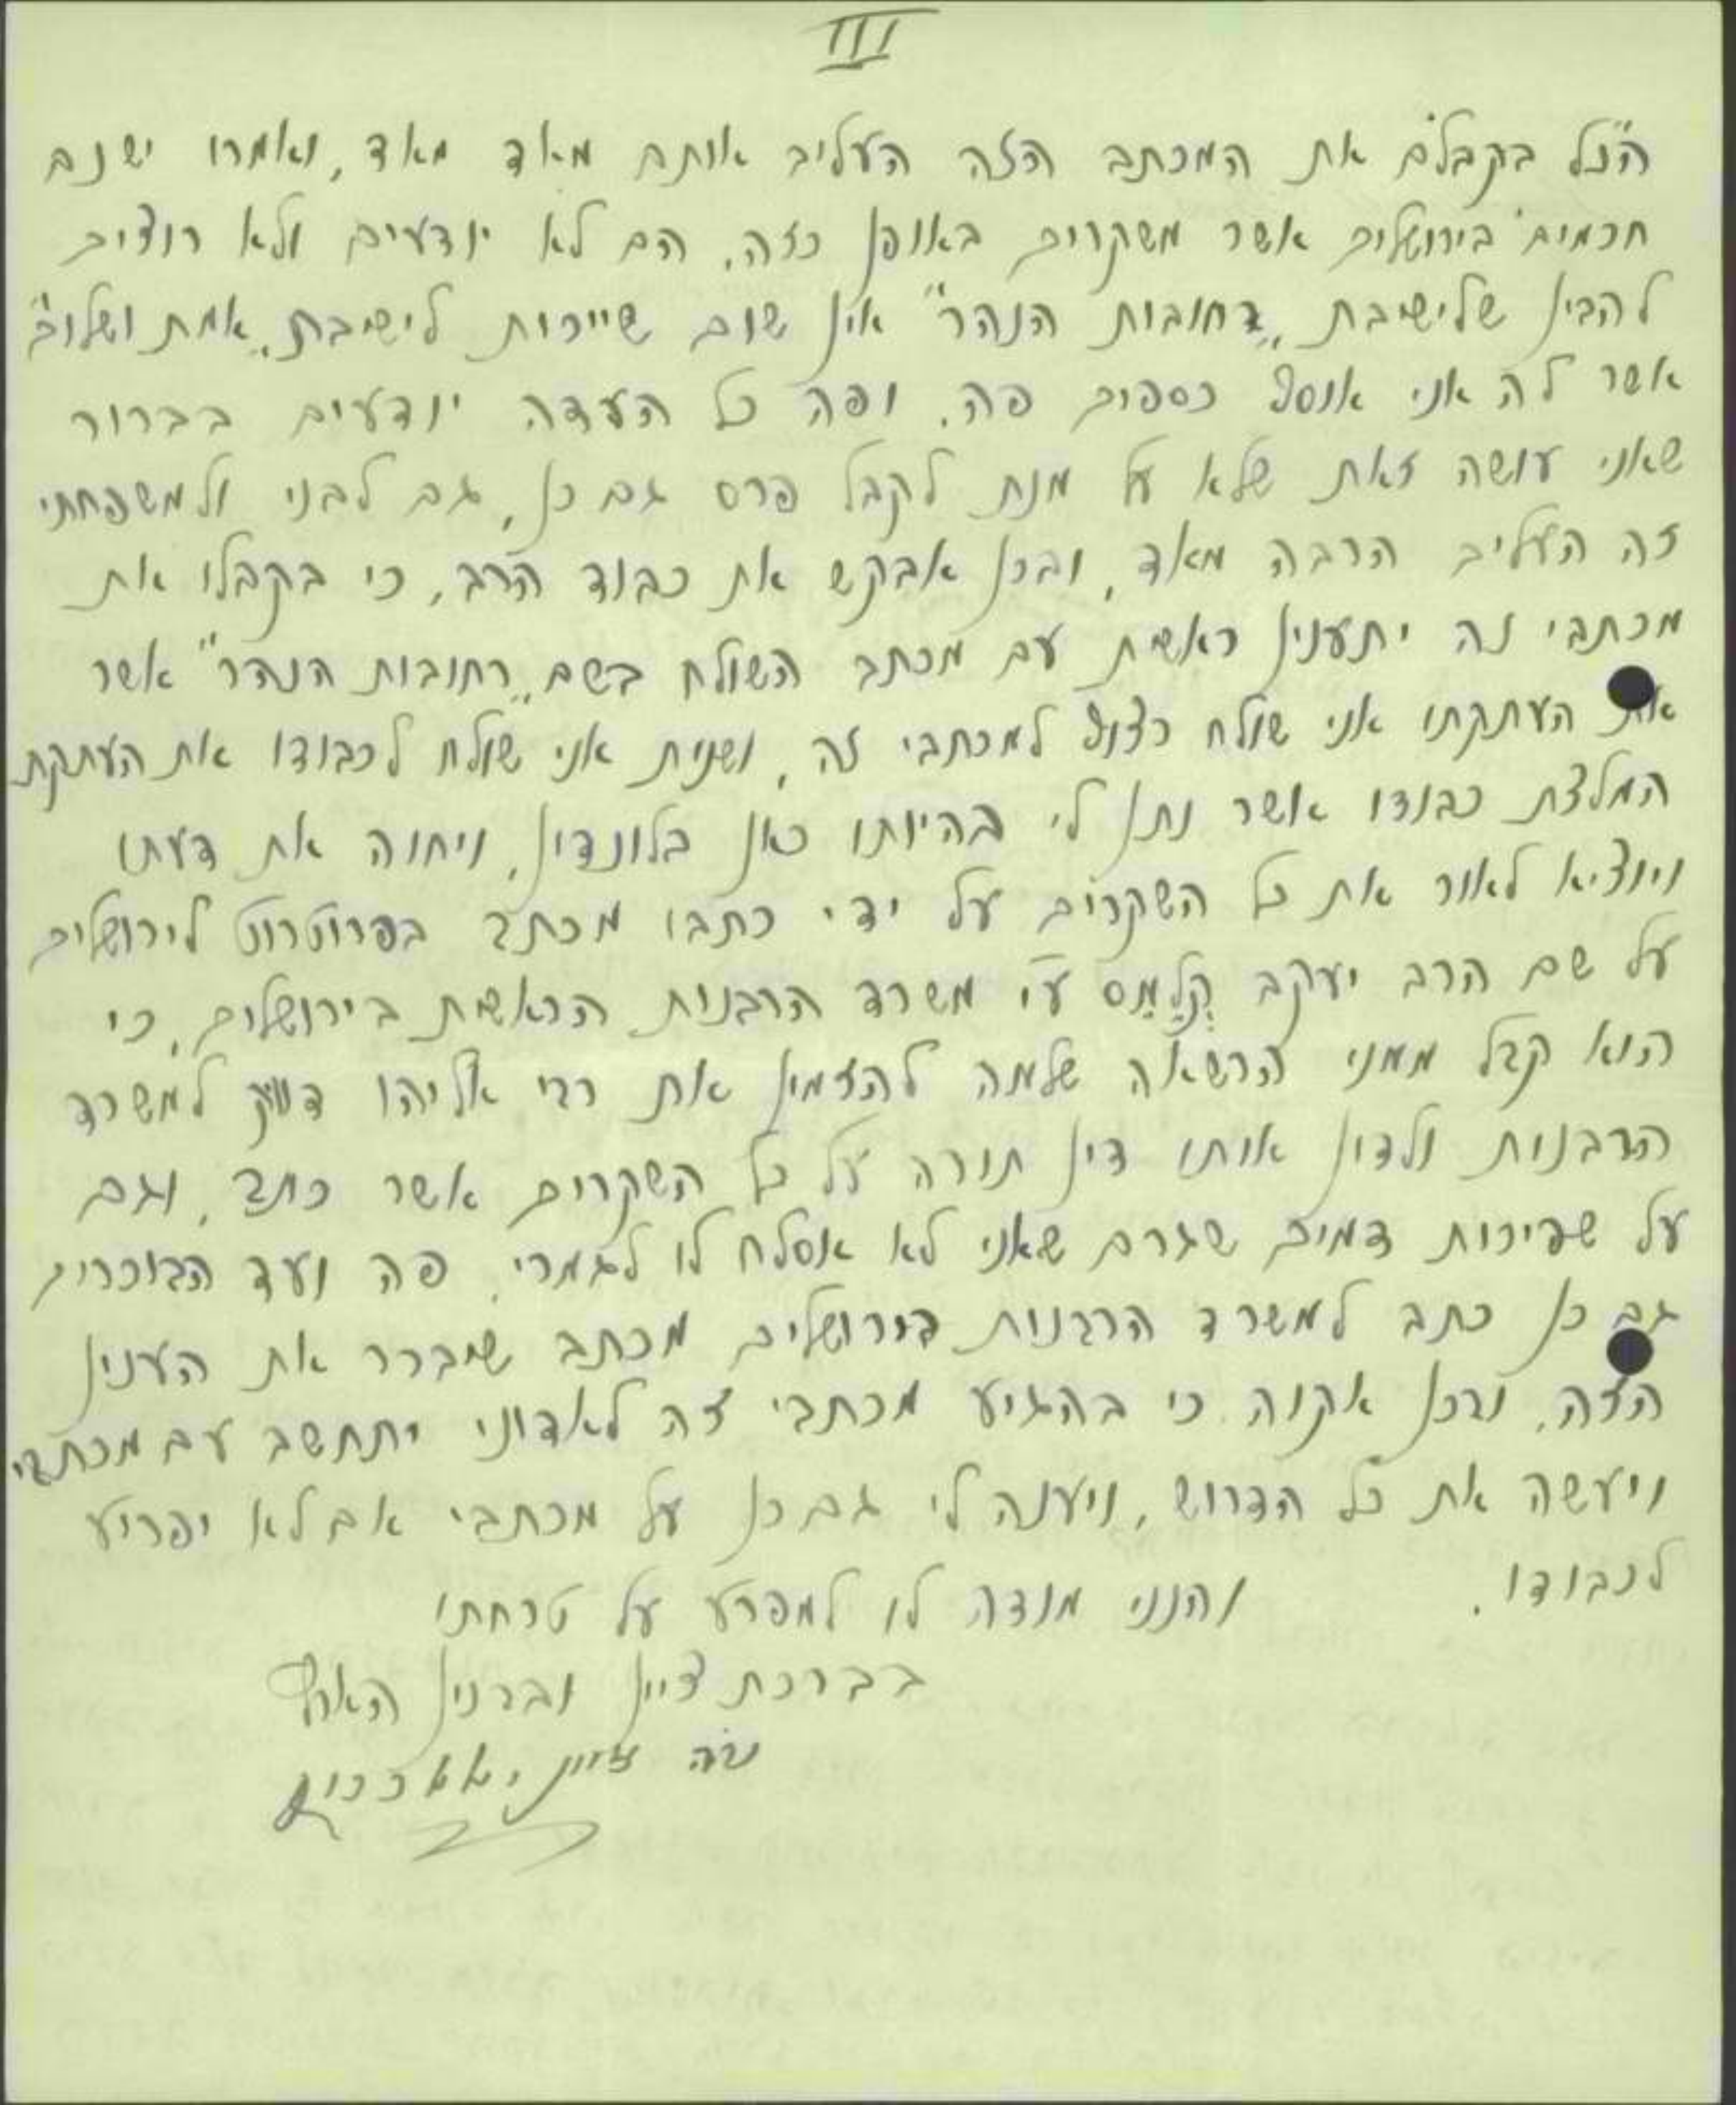 III
הנ"ל בקבלם את המכתב הזה העליב אותם מאד מאד, ואמרו ישנם
חכמים בירושלים אשר משקרים באופן כזה. הם לא יודעים ולא רוצים
להבין שלישיבת „רחובות הנהר" אין שום שייכות לישיבת „אמת ושלום"
אשר לה אני אוסף כספים פה. ופה כל העדה יודעים בברור
שאני עושה זאת שלא על מנת לקבל פרס גם כן, גם לבני ולמשפחתי
זה העליב הרבה מאד, ובכן אבקש את כבוד הרב, כי בקבלו את
מכתבי זה יתענין ראשית עם מכתב השולח בשם „רחובות הנהר" אשר
את העתקתו אני שולח רצוף למכתבי זה, ושנית אני שולח לכבודו את העתקת
המלצת כבודו אשר נתן לי בהיותו כאן בלונדין, ויחוה את דעתו
ויוציא לאור את כל השקרים על ידי כתבו מכתב בפרוטרוט לירושלים
על שם הרב יעקב קלמס ע"י משרד הרבנות הראשית בירושלים, כי
הוא קבל ממני הרשאה שלמה להזמין את רבי אליהו דוויק למשרד
הרבנות ולדון אותו דין תורה על כל השקרים אשר כתב, וגם
על שפיכות דמים שגרם שאני לא אסלח לו לגמרי. פה ועד הבוכרים
גם כן כתב למשרד הרבנות בירושלים מכתב שיברר את הענין
הזה. ובכן אקוה כי בהגיע מכתבי זה לאדוני יתחשב עם מכתבי
ויעשה את כל הדרוש, ויענה לי גם כן על מכתבי אם לא יפריע
לכבודו. והנני מודה לו למפרע על טרחתו
בברכת ציון ובבנין הארץ